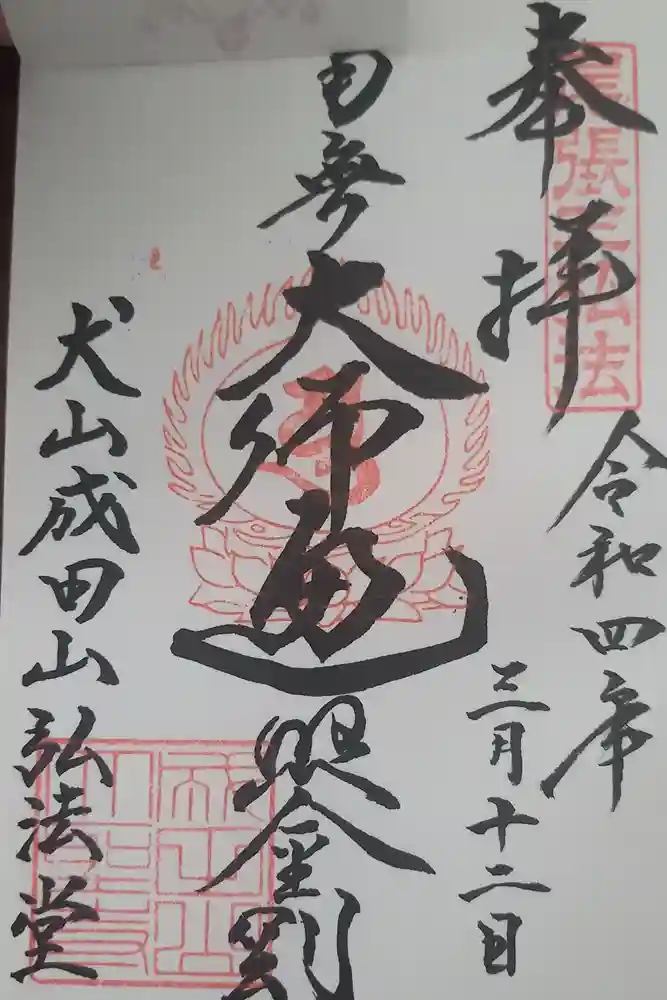 奉拝
令和四年
三月十二日
南無大師遍照金剛
犬山成田山弘法堂
尾張三弘法